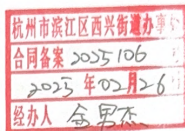 杭州市滨江区西兴街道办事
合同备案 2025106
2025 年 02 月 26
经办人 金男杰